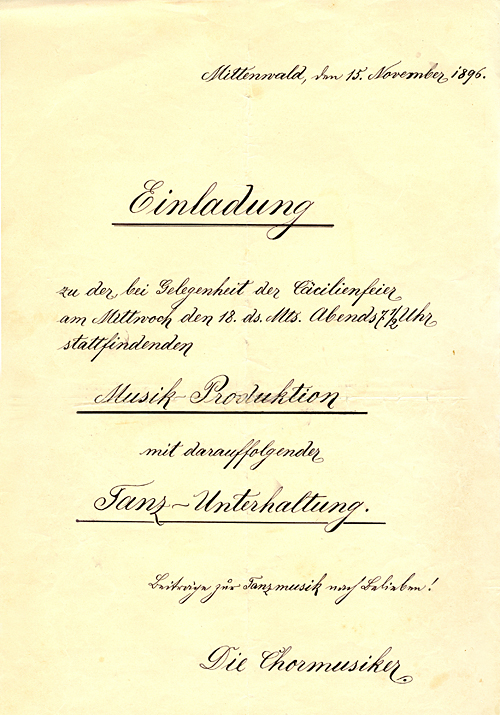 Mittenwald, den 15. November 1896.
Einladung
zu der bei Gelegenheit der Cäcilienfeier
am Mittwoch den 18. ds. Mts. Abends 7 1/2 Uhr
stattfindenden
Musik-Produktion
mit darauffolgender
Tanz-Unterhaltung.
Beiträge zur Tanzmusik nach Belieben!
Die Chormusiker